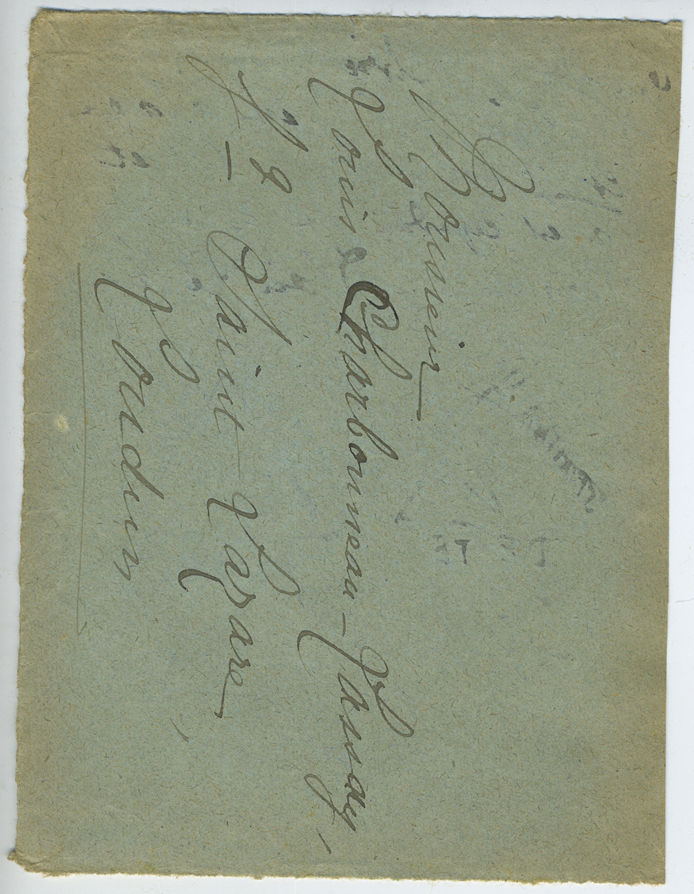 Monsieur
Louis Charbonneau-Lassay,
Saint Lazare,
Loudun